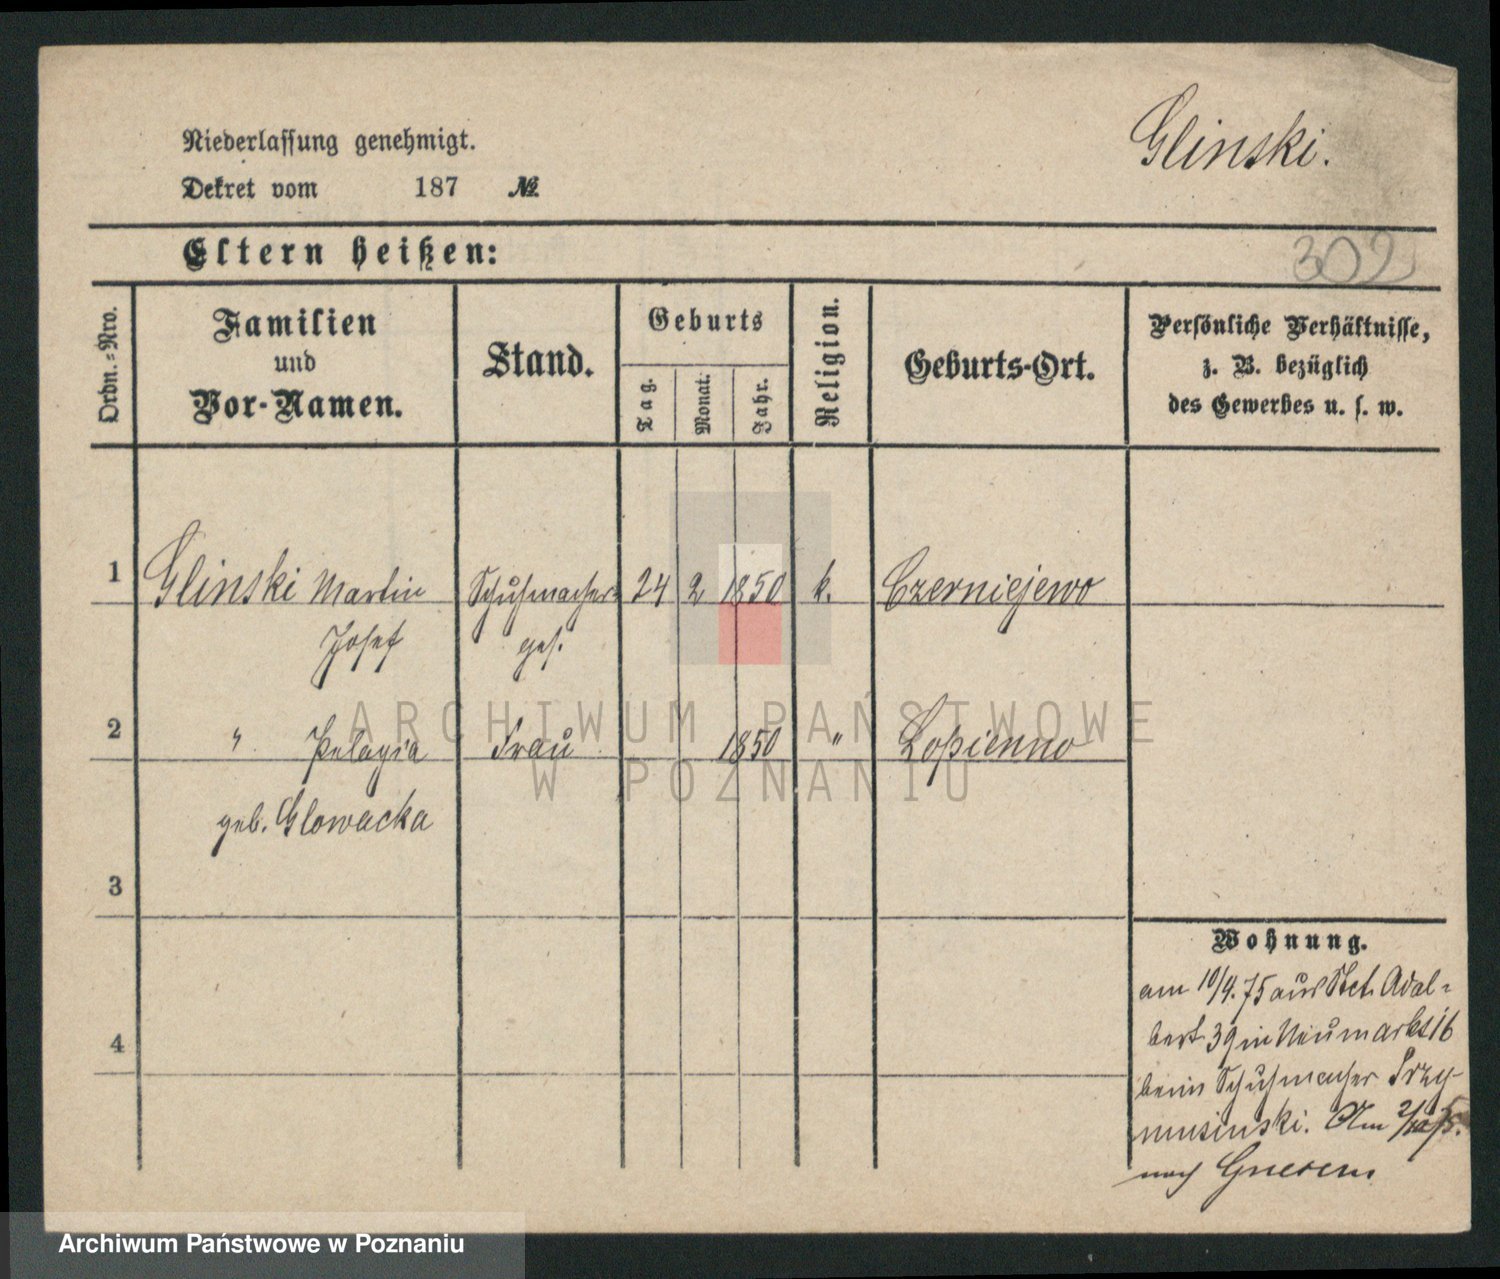 Glinski.
Niederlassung genehmigt.
Dekret vom 187 №
Eltern heißen:
302
Ordn.=Nro.
Familien
und
Vor-Namen.
Stand.
Geburts
Tag.
Monat.
Jahr.
Religion.
Geburts-Ort.
Persönliche Verhältnisse,
z. B. bezüglich
des Gewerbes u. s. w.
1 Glinski Martin Schuhmacher= 24 2 1850 k. Czerniejewo
Josef ges.
2 " Pelagia Frau 1850 " Lopienno
geb. Glowacka
3
4
Wohnung.
am 10/4.75 aus Sct. Adal=
bert 39 in Neumarkt 16
beim Schuhmacher Przy-
musinski. Am 2/10 75.
nach Gnesen
ARCHIWUM PAŃSTWOWE
W POZNANIU
Archiwum Państwowe w Poznaniu